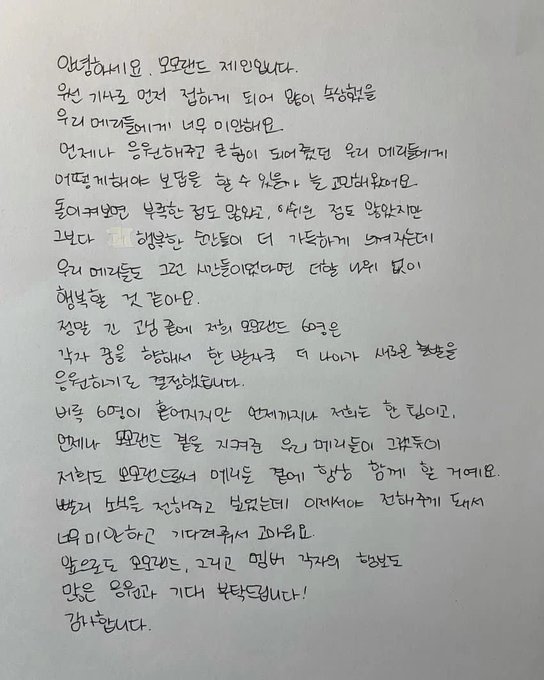 안녕하세요. 모모랜드 제인입니다.
우선 기사로 먼저 접하게 되어 많이 속상했을
우리 메리들에게 너무 미안해요
언제나 응원해주고 큰 힘이 되어줬던 우리 메리들에게
어떻게해야 보답을 할 수 있을까 늘 고민해왔어요
돌이켜보면 부족한 점도 많았고, 아쉬운 점도 많았지만
그보다 행복한 순간들이 더 가득하게 느껴지는데
우리 메리들도 그런 시간들이었다면 더할 나위 없이
행복할 것 같아요.
정말 긴 고심 끝에 저희 모모랜드 6명은
각자 꿈을 향해서 한 발자국 더 나아가 새로운 출발을
응원하기로 결정했습니다.
비록 6명이 흩어지지만 언제까지나 저희는 한 팀이고,
언제나 모모랜드 곁을 지켜준 우리 메리들이 그랬듯이
저희도 모모랜드로서 메리들 곁에 항상 함께 할 거예요.
빨리 소식을 전해주고 싶었는데 이제서야 전해주게 돼서
너무 미안하고 기다려줘서 고마워요.
앞으로도 모모랜드, 그리고 멤버 각자의 행보도
많은 응원과 기대 부탁드립니다!
감사합니다.